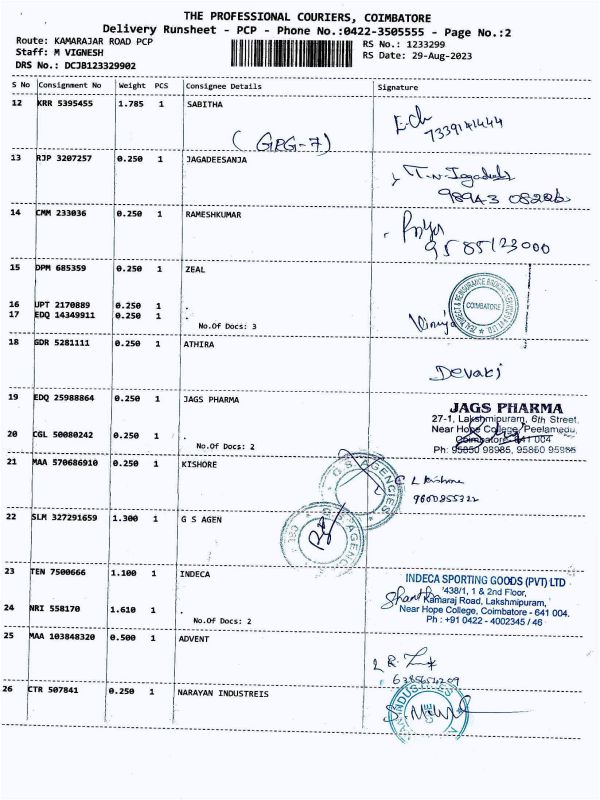 THE PROFESSIONAL COURIERS, COIMBATORE
Delivery Runsheet - PCP - Phone No.:0422-3505555 - Page No.:2
Route: KAMARAJAR ROAD PCP
Staff: M VIGNESH
DRS No.: DCJB123329902
RS No.: 1233299
RS Date: 29-Aug-2023
S No Consignment No Weight PCS Consignee Details Signature
12 KRR 5395455 1.785 1 SABITHA
7339141444
(GRG-7)
13 RJP 3207257 0.250 1 JAGADEESANJA
T.N. Jagadeesh
98943 08226
14 CMM 233036 0.250 1 RAMESHKUMAR
Priya
9585123000
15 DPM 685359 0.250 1 ZEAL
COIMBATORE
16 UPT 2170889 0.250 1 .
17 EDQ 14349911 0.250 1 .
No.Of Docs: 3
18 GDR 5281111 0.250 1 ATHIRA
Devaki
19 EDQ 25988864 0.250 1 JAGS PHARMA
JAGS PHARMA
27-1, Lakshmipuram, 6th Street,
Near Hope College, Peelamedu,
Coimbatore-641 004
Ph: 95850 98985, 95860 95985
20 CGL 50080242 0.250 1 .
No.Of Docs: 2
21 MAA 570686910 0.250 1 KISHORE
G S AGENCIES
C L Krishna
9600855322
22 SLM 327291659 1.300 1 G S AGEN
G S AGENCIES
23 TEN 7500666 1.100 1 INDECA
INDECA SPORTING GOODS (PVT) LTD
438/1, 1 & 2nd Floor,
Kamaraj Road, Lakshmipuram,
Near Hope College, Coimbatore - 641 004.
Ph : +91 0422 - 4002345 / 46
Shantha
24 NRI 558170 1.610 1 .
No.Of Docs: 2
25 MAA 103848320 0.500 1 ADVENT
6385654209
26 CTR 507841 0.250 1 NARAYAN INDUSTREIS